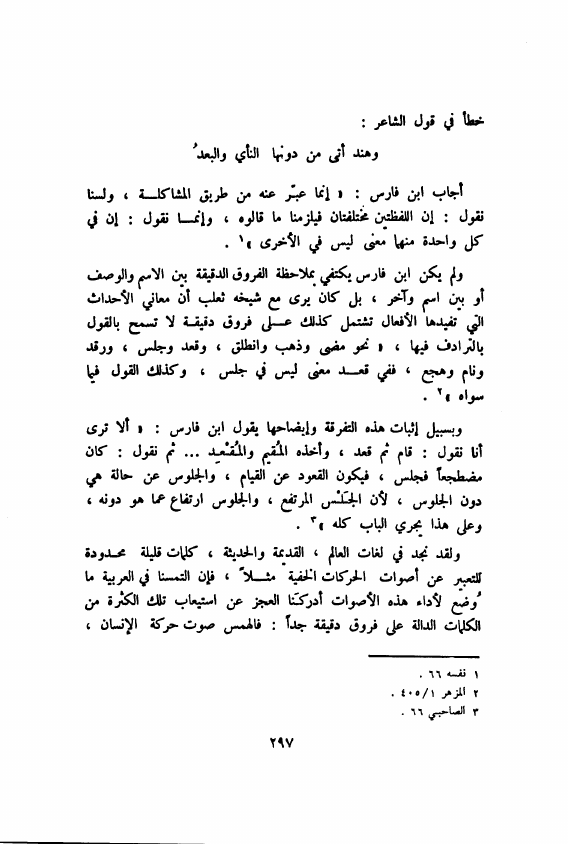 خطأ في قول الشاعر :
وهند أتى من دونها النأي والبعدُ
أجاب ابن فارس : « إنما عبّر عنه من طريق المشاكلـــة ، ولسنا
نقول : إن اللفظتين مختلفتان فيلزمنا ما قالوه ، وإنمـــا نقول : إن في
كل واحدة منها معنى ليس في الأخرى »١ .
ولم يكن ابن فارس يكتفي بملاحظة الفروق الدقيقة بين الاسم والوصف
أو بين اسم وآخر ، بل كان يرى مع شيخه ثعلب أن معاني الأحداث
التي تفيدها الأفعال تشتمل كذلك عـــلى فروق دقيقـة لا تسمح بالقول
بالترادف فيها ، « نحو مضى وذهب وانطلق ، وقعد وجلس ، ورقد
ونام وهجع ، ففي قعـــد معنى ليس في جلس ، وكذلك القول فيما
سواه »٢ .
وبسبيل إثبات هذه التفرقة وإيضاحها يقول ابن فارس : « ألا ترى
أنا نقول : قام ثم قعد ، وأخذه المُقيم والمُقْعِد ... ثم نقول : كان
مضطجعاً فجلس ، فيكون القعود عن القيام ، والجلوس عن حالة هي
دون الجلوس ، لأن الجَلْس المرتفع ، والجلوس ارتفاع عما هو دونه ،
وعلى هذا يجري الباب كله »٣ .
ولقد نجد في لغات العالم ، القديمة والحديثة ، كلمات قليلة محـدودة
للتعبير عن أصوات الحركات الخفية مثــلاً ، فإن التمسنا في العربية ما
وُضع لأداء هذه الأصوات أدركنا العجز عن استيعاب تلك الكثرة من
الكلمات الدالة على فروق دقيقة جداً : فالهمس صوت حركة الإنسان ،
١ نفسه ٦٦ .
٢ المزهر ٤٠٥/١ .
٣ الصاحبي ٦٦ .
٢٩٧